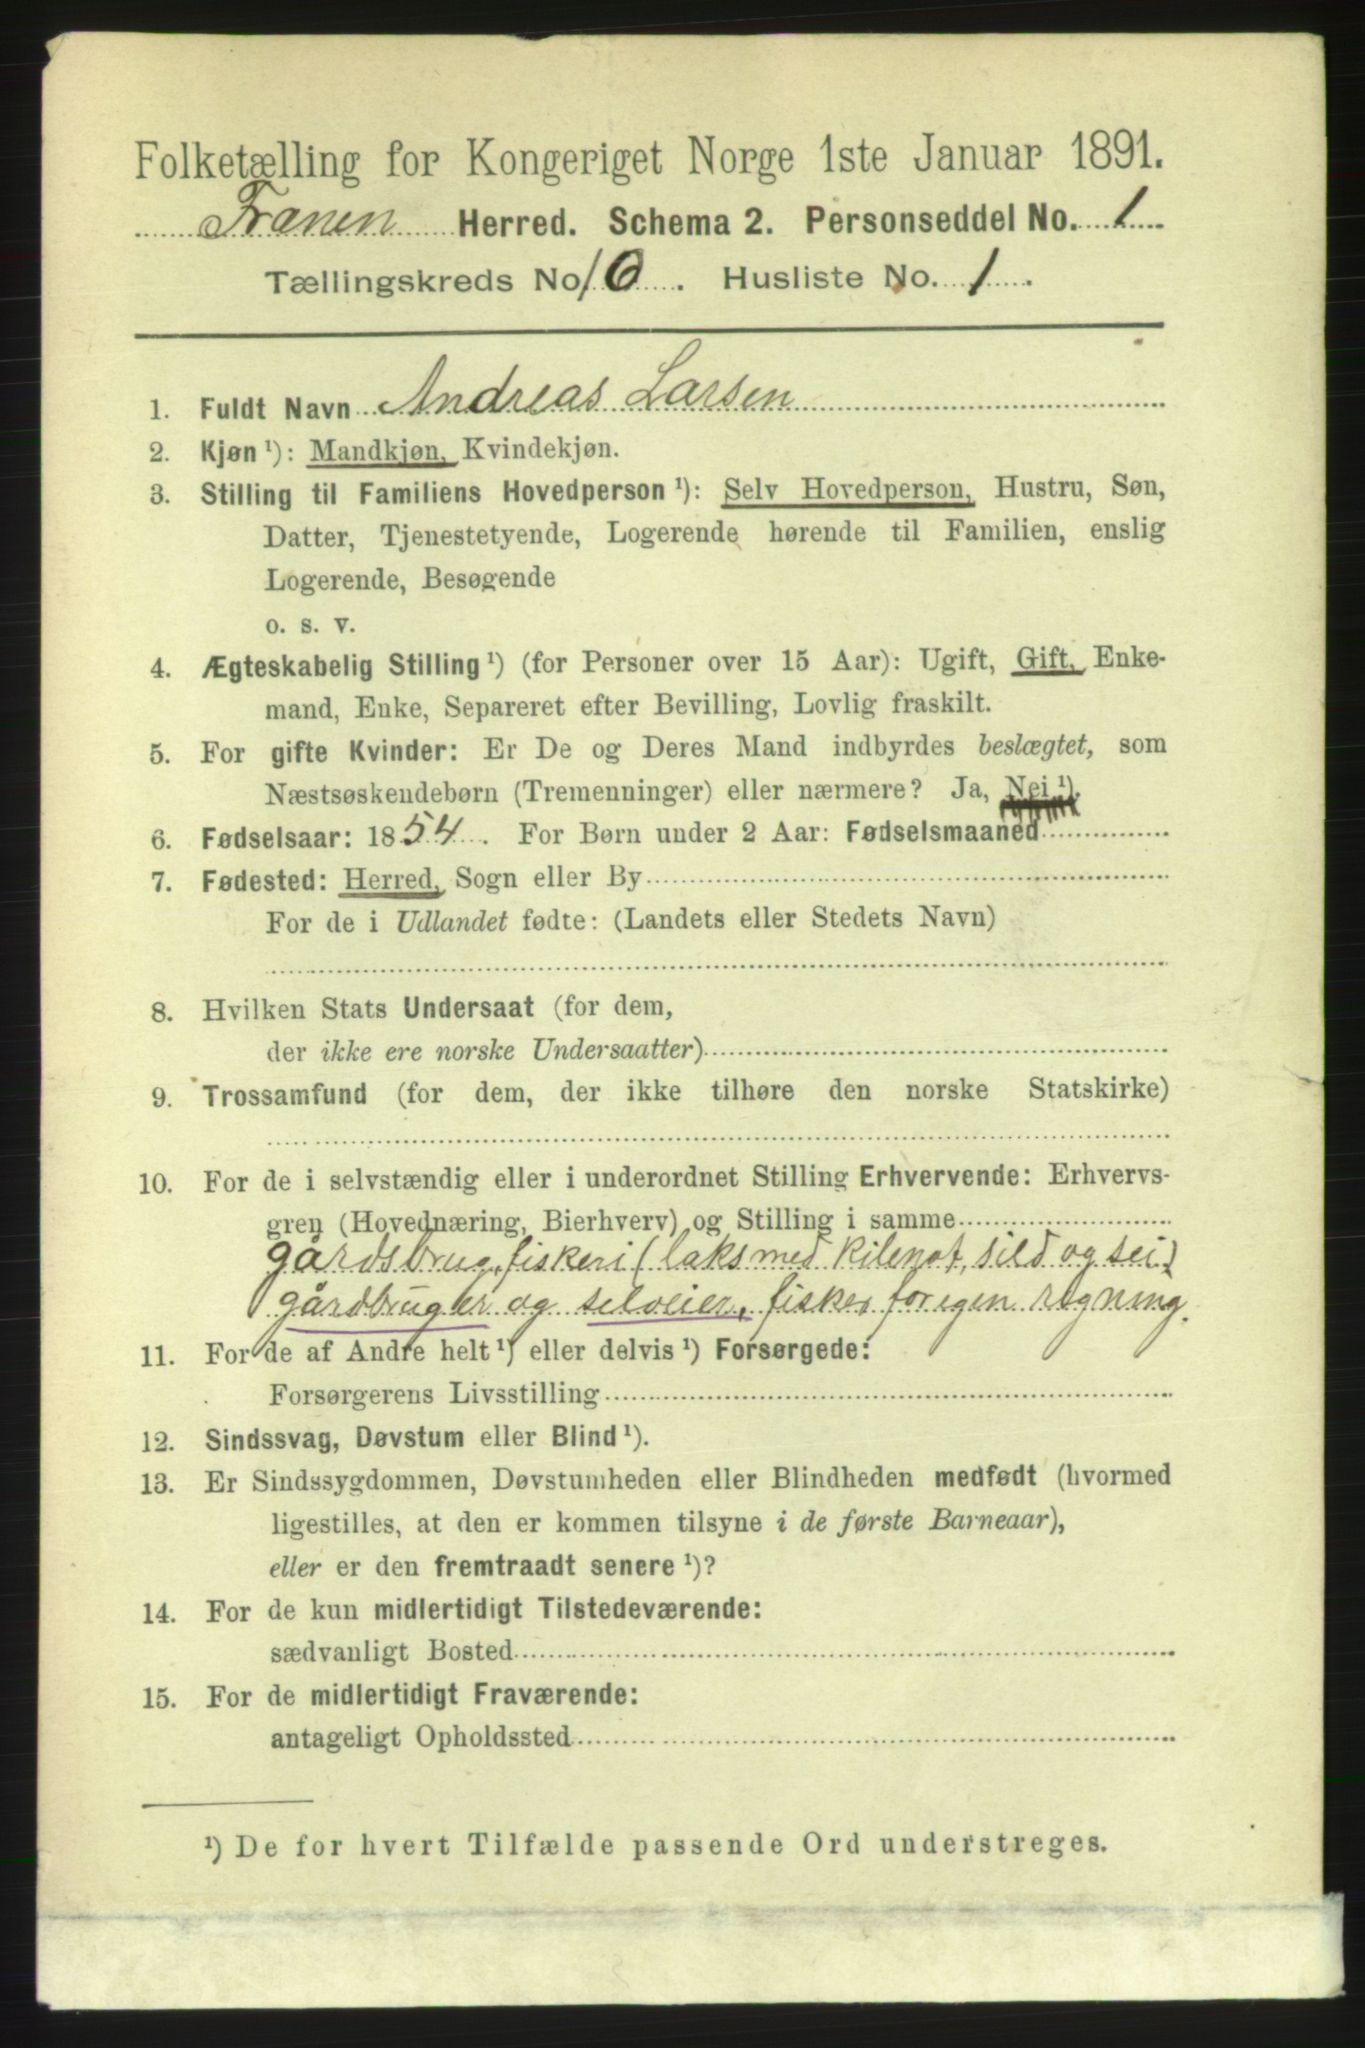 Folketælling for Kongeriget Norge 1ste Januar 1891.
Frænen Herred. Schema 2. Personseddel No. 1
Tællingskreds No 10. Husliste No. 1.
1. Fuldt Navn Andreas Larsen
2. Kjøn ¹): Mandkjøn, Kvindekjøn.
3. Stilling til Familiens Hovedperson ¹): Selv Hovedperson, Hustru, Søn,
Datter, Tjenestetyende, Logerende hørende til Familien, enslig
Logerende, Besøgende
o. s. v.
4. Ægteskabelig Stilling ¹) (for Personer over 15 Aar): Ugift, Gift, Enke-
mand, Enke, Separeret efter Bevilling, Lovlig fraskilt.
5. For gifte Kvinder: Er De og Deres Mand indbyrdes beslægtet, som
Næstsøskendebørn (Tremenninger) eller nærmere? Ja, Nei ¹).
6. Fødselsaar: 1854. For Børn under 2 Aar: Fødselsmaaned
7. Fødested: Herred, Sogn eller By
For de i Udlandet fødte: (Landets eller Stedets Navn)
8. Hvilken Stats Undersaat (for dem,
der ikke ere norske Undersaatter)
9. Trossamfund (for dem, der ikke tilhøre den norske Statskirke)
10. For de i selvstændig eller i underordnet Stilling Erhvervende: Erhvervs-
gren (Hovednæring, Bierhverv) og Stilling i samme
gårdsbrug, fiskeri (laks med kilenot, sild og sei)
gårdbruger og selveier, fisker for egen regning.
11. For de af Andre helt ¹) eller delvis ¹) Forsørgede:
Forsørgerens Livsstilling
12. Sindssvag, Døvstum eller Blind ¹).
13. Er Sindssygdommen, Døvstumheden eller Blindheden medfødt (hvormed
ligestilles, at den er kommen tilsyne i de første Barneaar),
eller er den fremtraadt senere ¹)?
14. For de kun midlertidigt Tilstedeværende:
sædvanligt Bosted
15. For de midlertidigt Fraværende:
antageligt Opholdssted
¹) De for hvert Tilfælde passende Ord understreges.